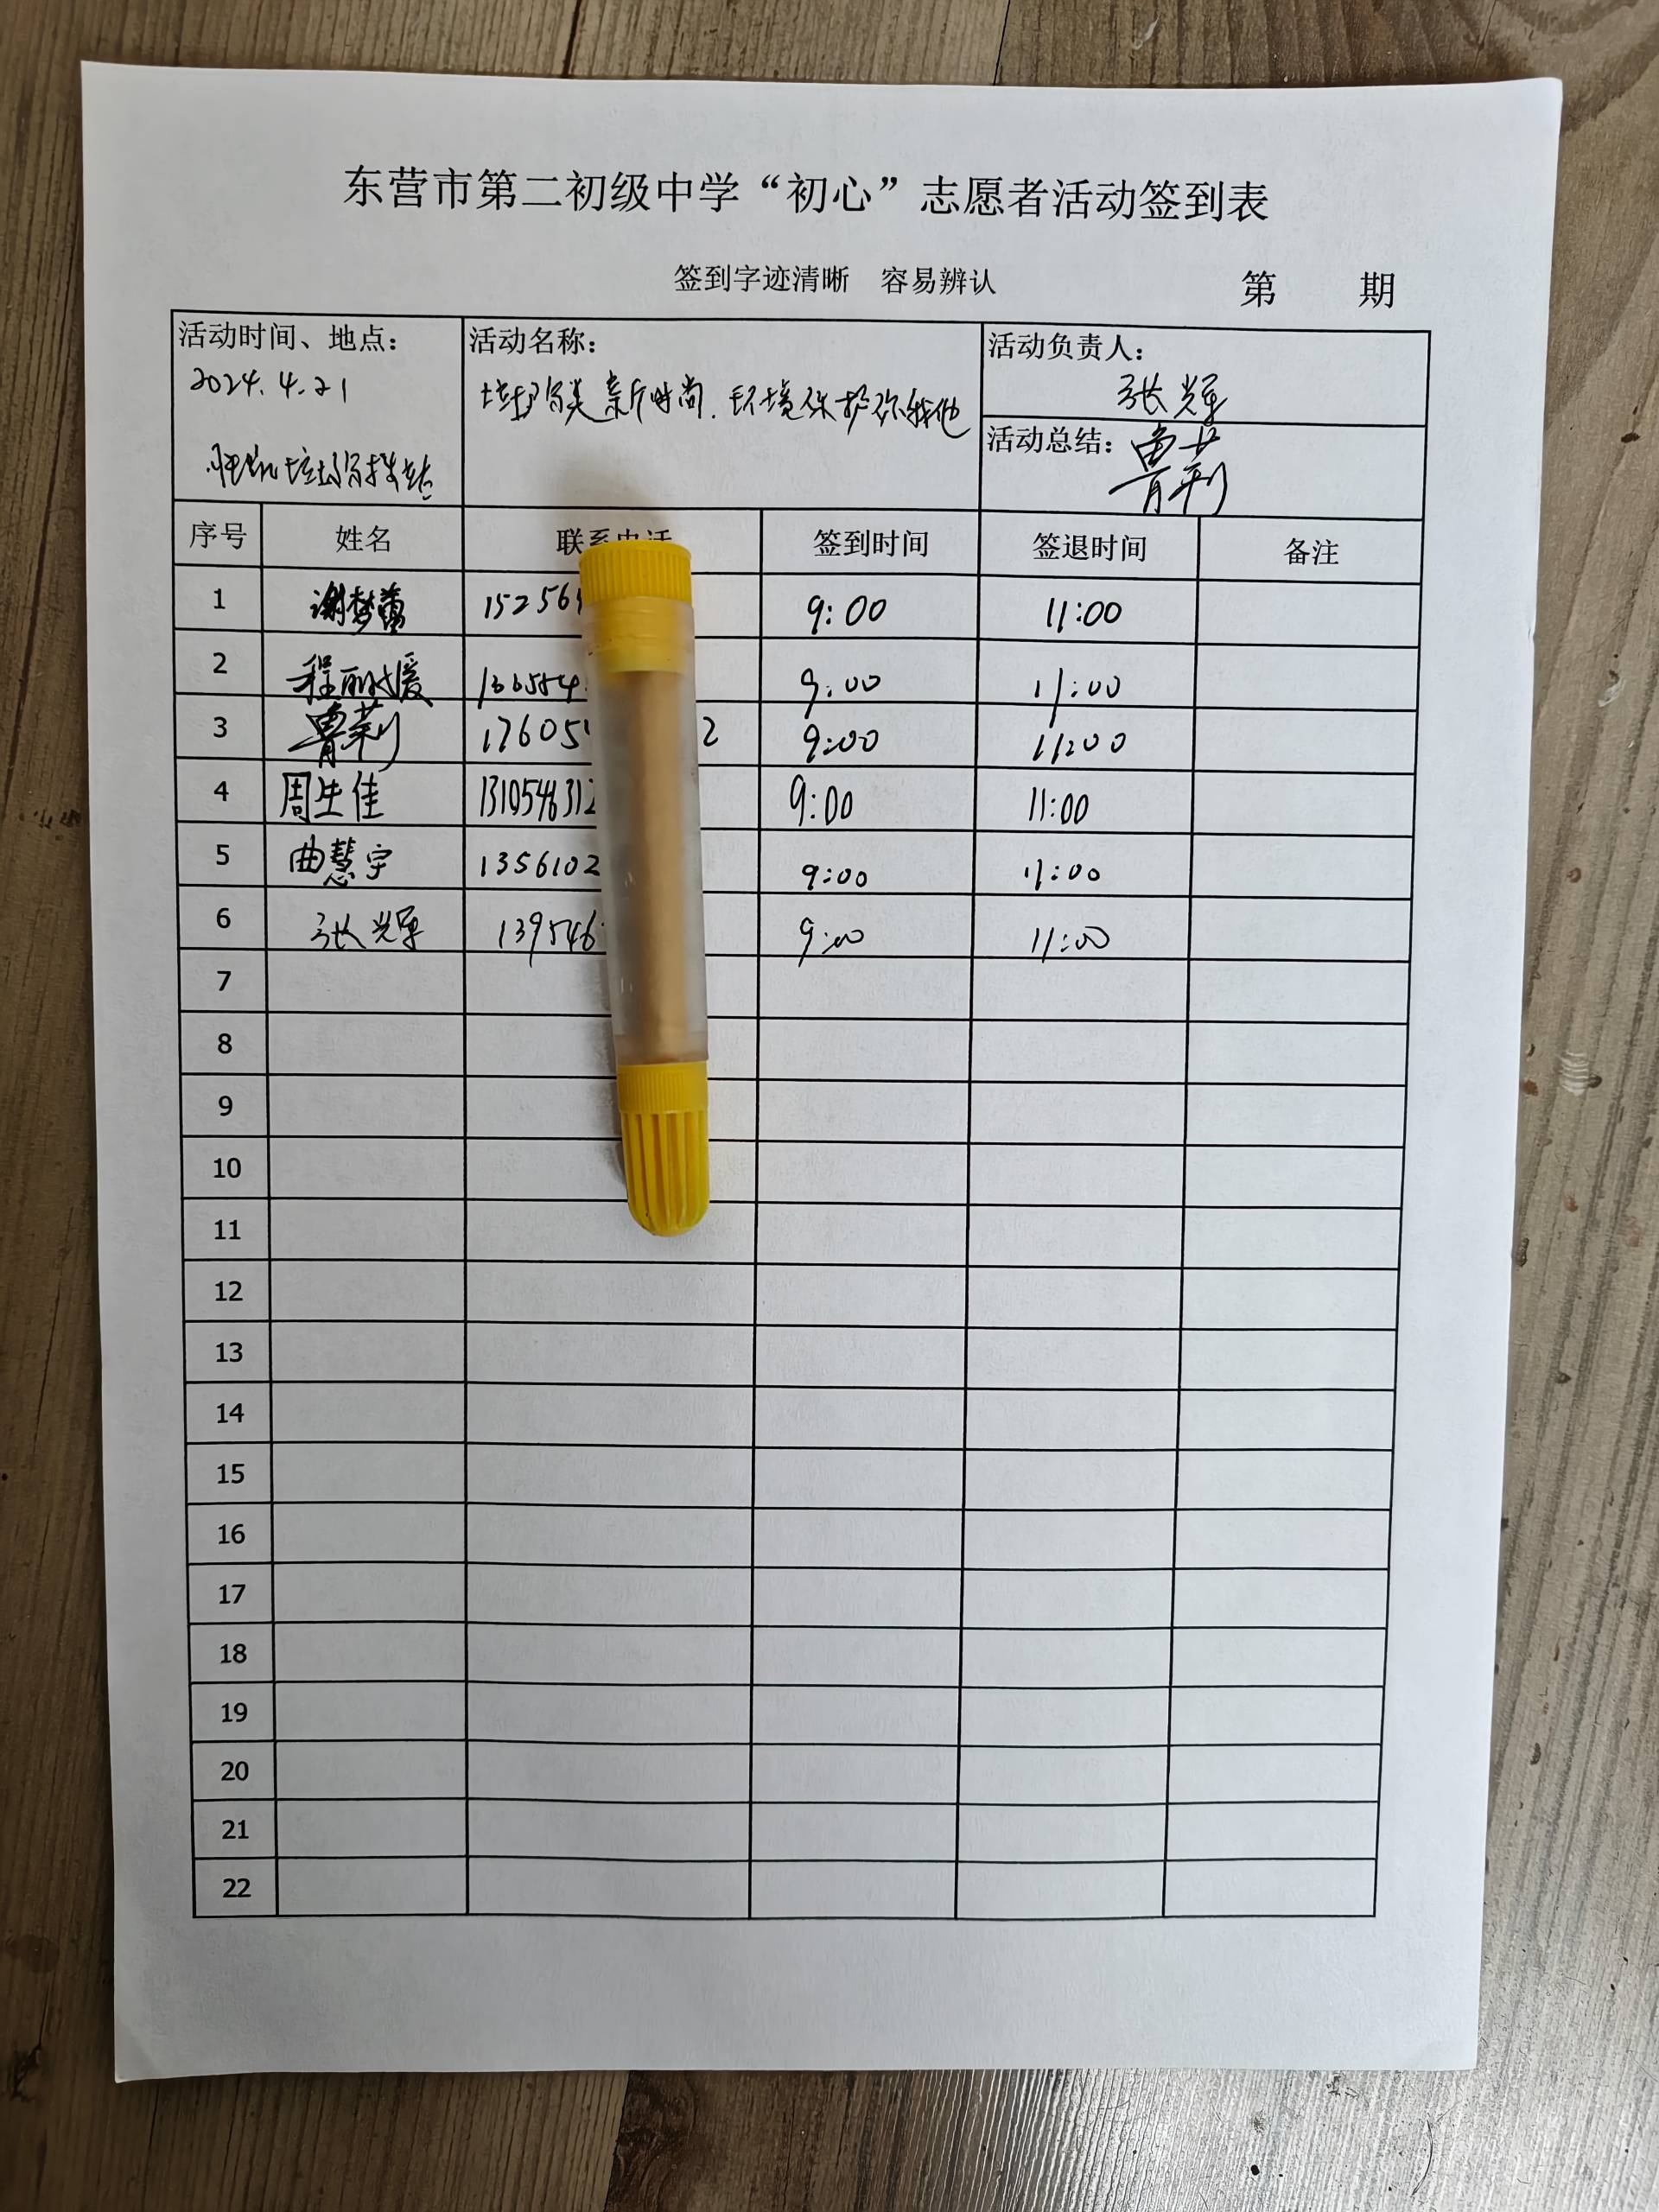 东营市第二初级中学“初心”志愿者活动签到表
签到字迹清晰 容易辨认 第 期
活动时间、地点：
2024.4.21
垃圾分拣站
活动名称：
垃圾分类新时尚.环境保护你我他
活动负责人：
张辉
活动总结：鲁莉
序号 姓名 签到时间 签退时间 备注
1 谢梦蕾 15256 9:00 11:00
2 程丽媛 9:00 11:00
3 鲁莉 17605 2 9:00 11:00
4 周生佳 131054631 9:00 11:00
5 曲慧宇 1356102 9:00 11:00
6 张辉 139546 9:00 11:00
7
8
9
10
11
12
13
14
15
16
17
18
19
20
21
22